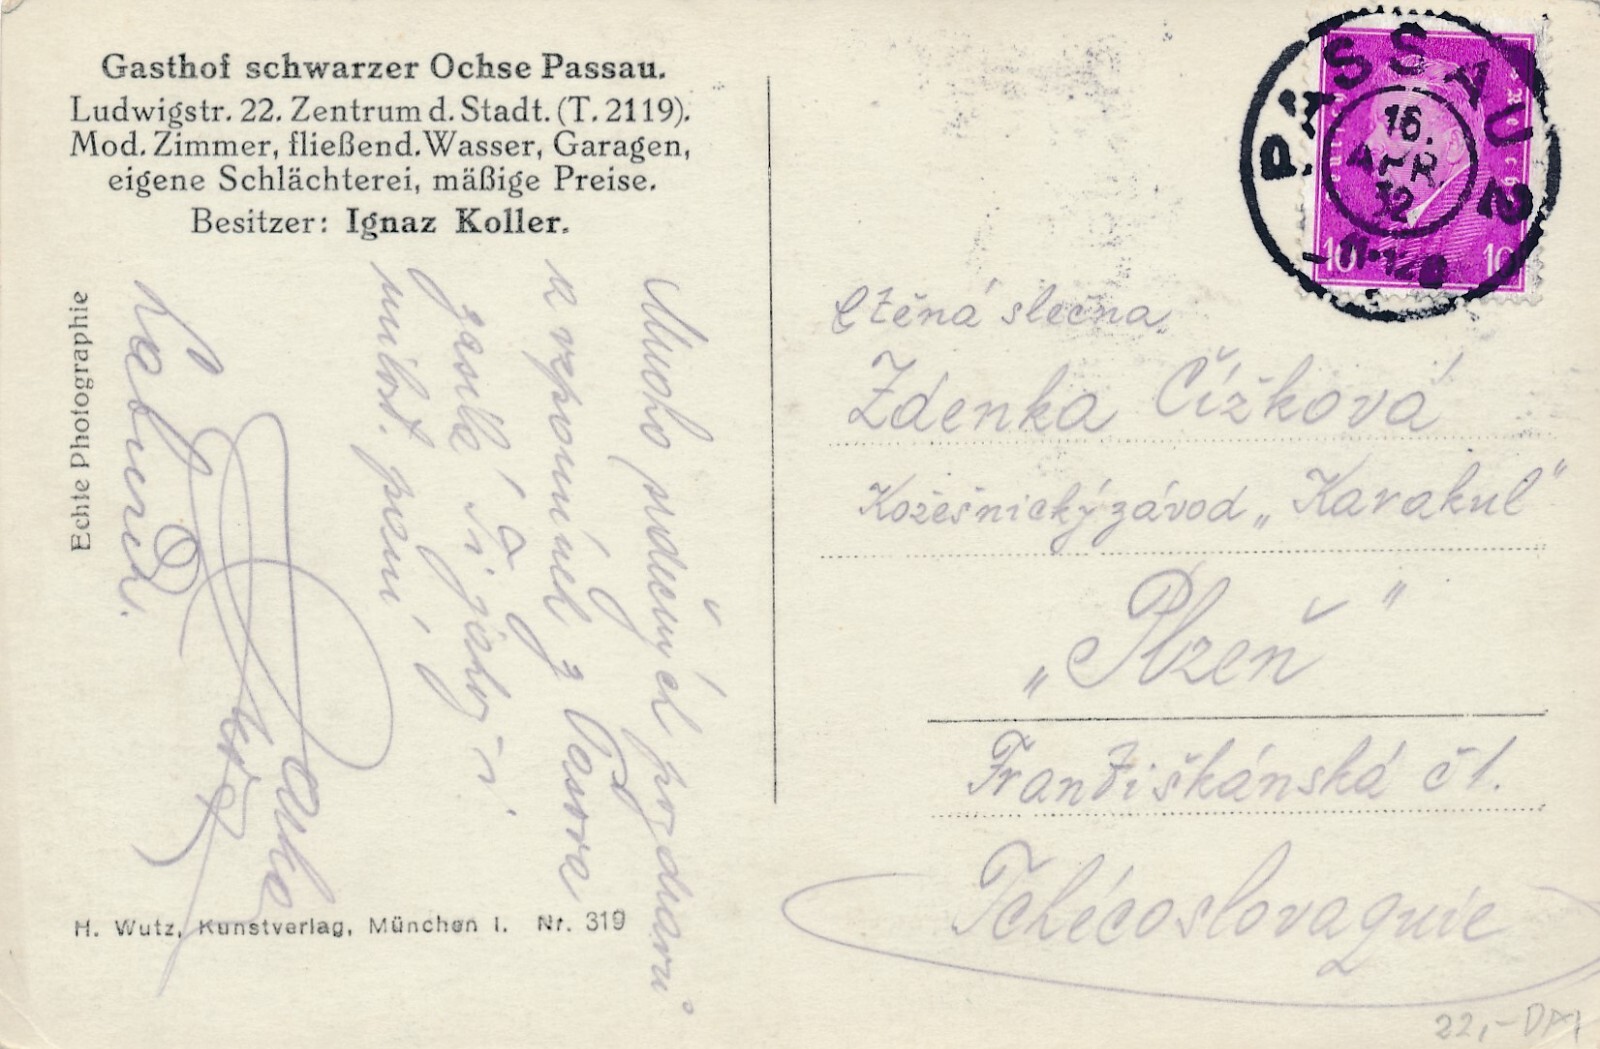 Gasthof schwarzer Ochse Passau.
Ludwigstr. 22. Zentrum d. Stadt. (T. 2119).
Mod. Zimmer, fließend. Wasser, Garagen,
eigene Schlächterei, mäßige Preise.
Besitzer: Ignaz Koller.
Echte Photographie
H. Wutz, Kunstverlag, München I. Nr. 319
Mnoho srdečných pozdravů
a vzpomínek z Pasova
zasílá
PASSAU 2
16.
APR.
32
10 10
Ctěná slečna
Zdenka Čížková
Kožešnický závod „Karakul“
„Plzeň“
Františkánská č 1.
Tchécoslovaquie
22,-